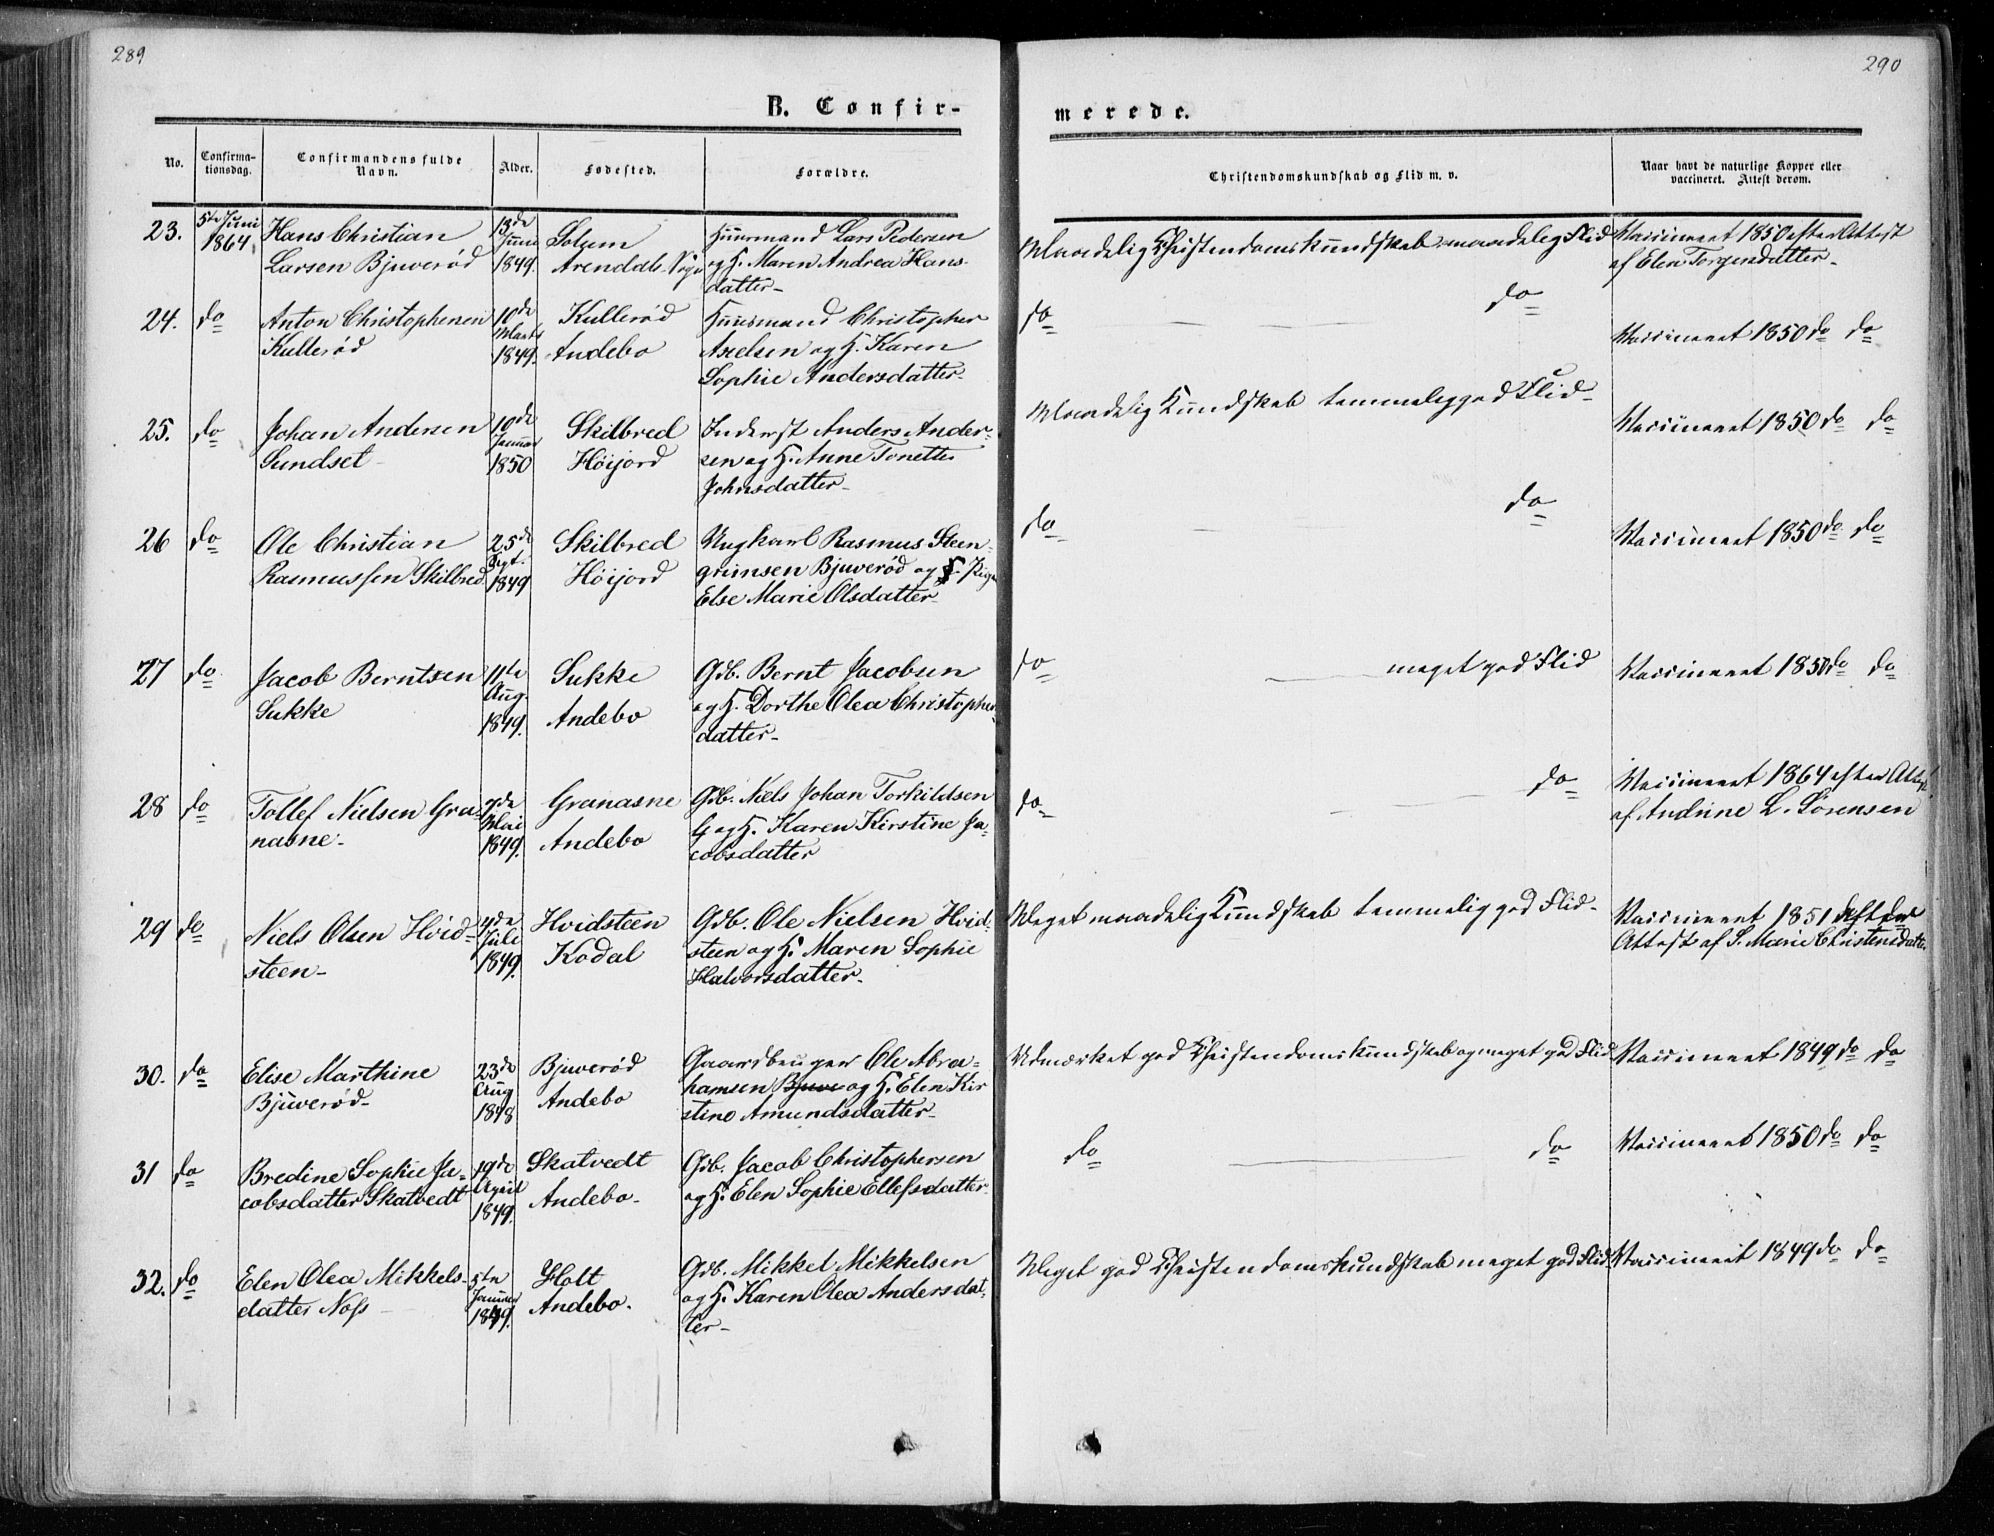 289
290
B. Confir-
merede.
No.
Confirma-
tionsdag.
Confirmandens fulde
Navn.
Alder.
Fødested.
Forældre.
Christendomskundskab og Flid m. v.
Naar havt de naturlige Kopper eller
vaccineret. Attest derom.
23. 5te Juni 1864 Hans Christian
Larsen Bjuverød
13de
Juni
1849.
Solum
Arendals Sogn
Huusmand Lars Pedersen
og H. Maren Andrea Hans-
datter-
Maadelig Christendomskundskab maadelig Flid
Vaccineret 1850 efter Attest
af Elen Torgersdatter-
24. do Anton Christophersen
Kullerød
10de
Marts
1849.
Kullerød
Andebo
Huusmand Christopher
Axelsen og H. Karen
Sophie Andersdatter-
do do
Vaccineret 1850 do do
25. do Johan Andersen
Sundset
10de
Januar
1850
Skilbred
Höijord
Inderst Anders Ander-
sen og H. Anne Tonette
Johnsdatter-
Maadelig Kundskab temmelig god Flid-
Vaccineret 1850 do do
26 do Ole Christian
Rasmussen Skilbred
25de
Sept.
1849
Skilbred
Höijord
Ungkarl Rasmus Steen-
grimsen Bjuverød og Pige
Else Marie Olsdatter-
do do
Vaccineret 1850 do do
27 do Jacob Berntsen
Sukke
11te
Aug.
1849.
Sukke
Andebo
Gdb. Bernt Jacobsen
og H. Dorthe Olea Christopher-
datter-
do meget god Flid
Vaccineret 1850 do do
28 do Tollef Nielsen Gra-
nasne-
7de
Mai
1849.
Granasne
Andebo
Gdb. Niels Johan Torkildsen
G og H. Karen Kirstine Ja-
cobsdatter
do do
Vaccineret 1864 efter Attest
af Andrine L. Sörensen
29 do Niels Olsen Hvid-
steen-
4de
Juli
1849.
Hvidsteen
Kodal
Gdb. Ole Nielsen Hvid-
steen og H. Maren Sophie
Halvorsdatter-
Meget maadelig Kundskab temmelig god Flid-
Vaccineret 1851 efter
Attest af S. Marie Christensdatter
30. do Elise Marthine
Bjuverød-
23de
Aug
1848
Bjuverød
Andebo
Gaardbruger Ole Abra-
hamsen Bjuve og H. Elen Kir
stine Amundsdatter-
Udmærket god Christendomskundskab og meget god Flid
Vaccineret 1849 do do
31 do Bredine Sophie Ja-
cobsdatter Skatvedt
19de
April
1849.
Skatvedt
Andebo-
Gdb. Jacob Christophersen
og H. Elen Sophie Ellefsdatter
do do
Vaccineret 1850 do do
32. do Elen Olea Mikkels-
datter Noss
5te
Januar
1849.
Holt
Andebo.
Gdb. Mikkel Mikkelsen
og H. Karen Olea Andersdat-
ter-
Meget god Christendomskundskab meget god Flid
Vaccineret 1849 do do